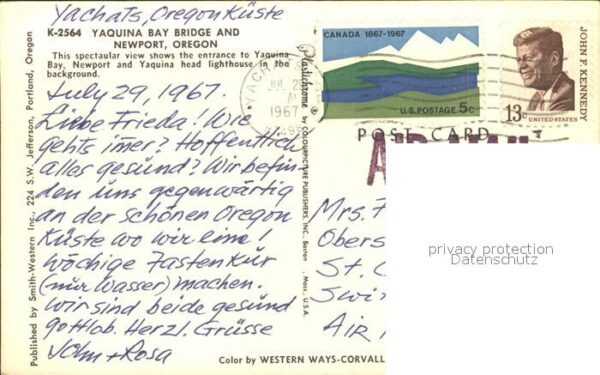 Yachats, Oregon Küste
K-2564 YAQUINA BAY BRIDGE AND
NEWPORT, OREGON
This spectacular view shows the entrance to Yaquina
Bay, Newport and Yaquina head lighthouse in the
background.
July 29, 1967.
Liebe Frieda! Wie
gehts imer? Hoffentlich
alles gesund? Wir befin-
den uns gegenwärtig
an der schönen Oregon
Küste wo wir eine!
wöchige Fastenkür
(nur Wasser) machen.
Wir sind beide gesund
gottlob. Herzl. Grüsse
John + Rosa
Published by Smith-Western Inc., 224 S.W. Jefferson, Portland, Oregon
Plastichrome ® by COLOURPICTURE PUBLISHERS, INC., Boston, Mass. U.S.A.
Color by WESTERN WAYS-CORVALL
CANADA 1867-1967
U.S. POSTAGE 5c
JOHN F. KENNEDY
13c
UNITED STATES
1967
POST CARD
AIR MAIL
Mrs. F
Obers
St. G
Swit
AIR
privacy protection
Datenschutz